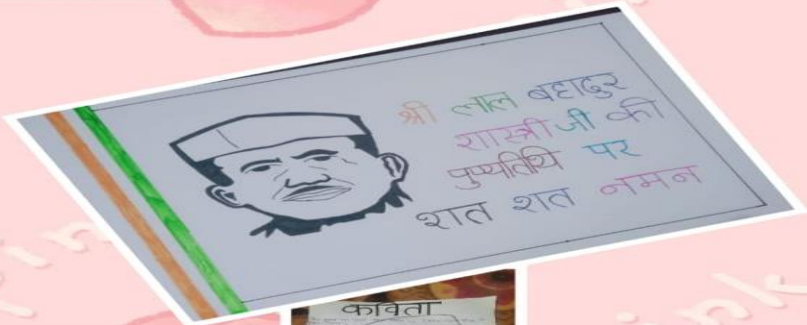 श्री लाल बहादुर
शास्त्री जी की
पुण्यतिथि पर
शत शत नमन
कविता